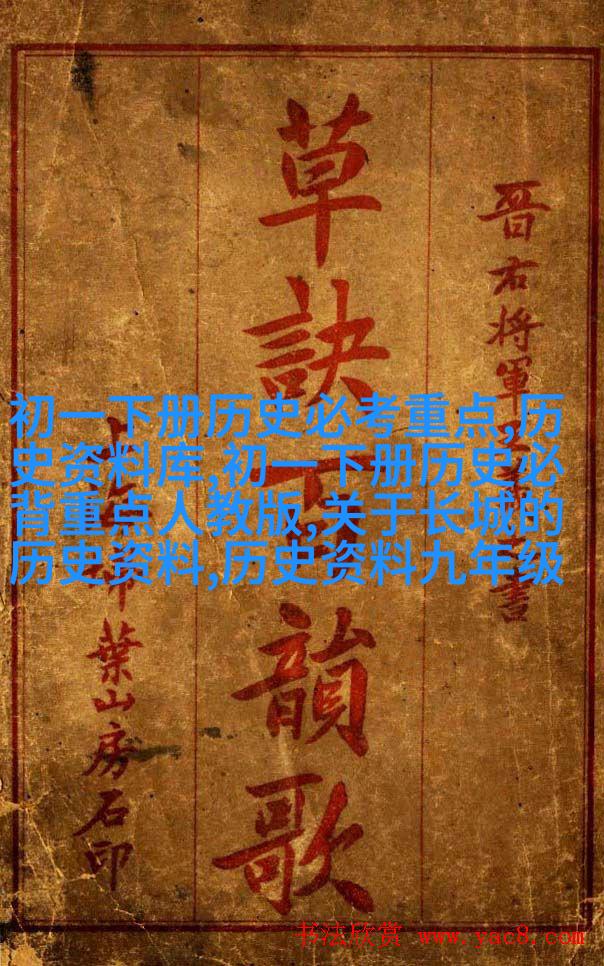 晋右将軍書
草訣百韻歌
葉山房石印
初一下册历史必考重点,历
史资料库,初一下册历史必
背重点人教版,关于长城的
历史资料,历史资料九年级
书法欣赏 www.yac8.com